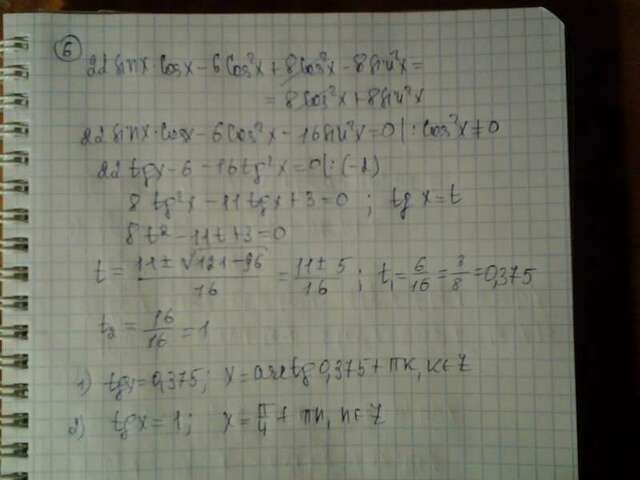 6
22 sinx·cosx − 6cos²x + 8cos²x − 8sin²x =
= 8cos²x + 8sin²x
22 sinx·cosx − 6cos²x − 16sin²x = 0 |: cos²x ≠ 0
22 tgx − 6 − 16tg²x = 0 |: (−2)
8 tg²x − 11tgx + 3 = 0 ; tg x = t
8t² − 11t + 3 = 0
t = (11 ± √(121 − 96))/16 = (11 ± 5)/16 ; t₁ = 6/16 = 3/8 = 0,375
t₂ = 16/16 = 1
1) tgx = 0,375; x = arctg 0,375 + πk, k ∈ Z
2) tgx = 1; x = π/4 + πn, n ∈ Z